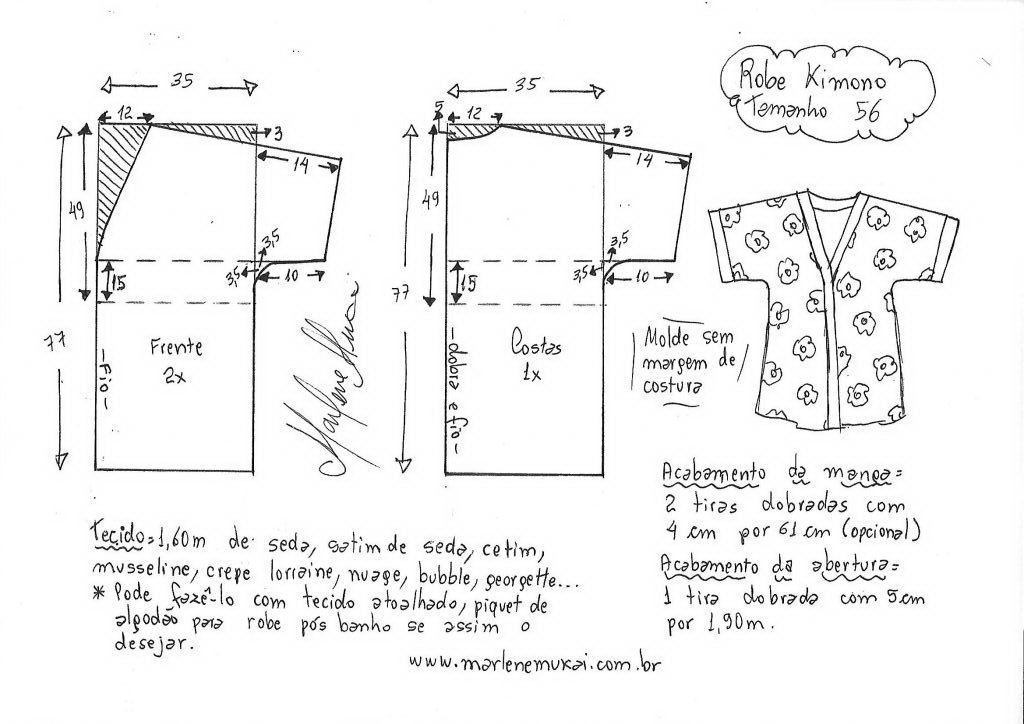 Robe Kimono
Tamanho 56
35
12
3
14
49
3,5
3,5
10
15
77
Frente
2x
-Fio-
35
5
12
3
14
49
3,5
3,5
10
15
77
Costas
1x
-dobra e fio-
Marlene Mukai
Molde sem
margem de
costura
Acabamento da manga=
2 tiras dobradas com
4 cm por 61 cm (opcional)
Acabamento da abertura=
1 tira dobrada com 5cm
por 1,90m.
Tecido=1,60m de seda, satim de seda, cetim,
musseline, crepe lorraine, nuage, bubble, georgette...
* Pode fazê-lo com tecido atoalhado, piquet de
algodão para robe pós banho se assim o
desejar.
www.marlenemukai.com.br